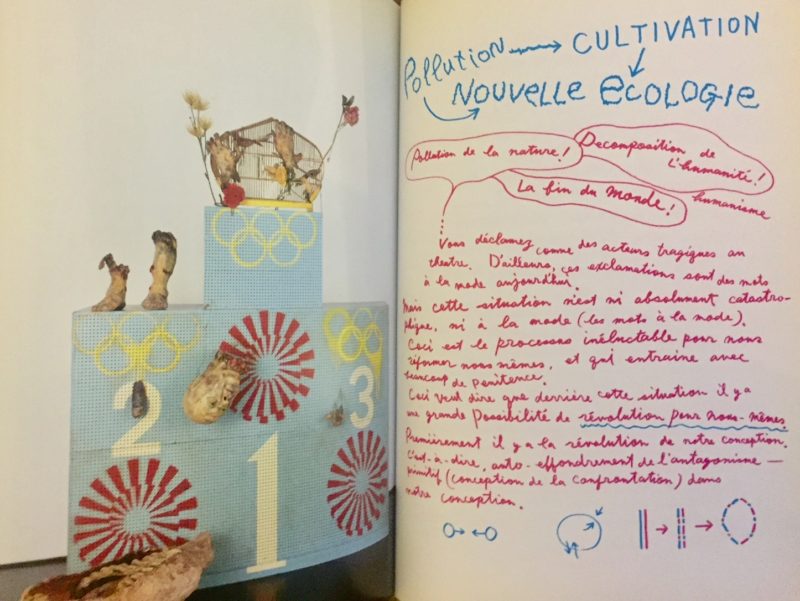 2
3
1
Pollution → CULTIVATION
NOUVELLE ECOLOGIE
Pollution de la nature!
Decomposition de
L'humanité!
La fin du monde!
humanisme
Vous déclamez comme des acteurs tragiques au
théatre. D'ailleurs, ces exclamations sont des mots
à la mode aujourd'hui.
Mais cette situation n'est ni absolument catastro-
phique, ni à la mode (les mots à la mode).
Ceci est le processus inéluctable pour nous
réformer nous-mêmes, et qui entraine avec
beaucoup de penitence.
Ceci veut dire que derrière cette situation il y a
une grande possibilité de révolution pour nous-mêmes.
Premièrement il y a la révolution de notre conception.
C'est-à-dire, auto-effondrement de l'antagonisme —
primitif (conception de la confrontation) dans
notre conception.